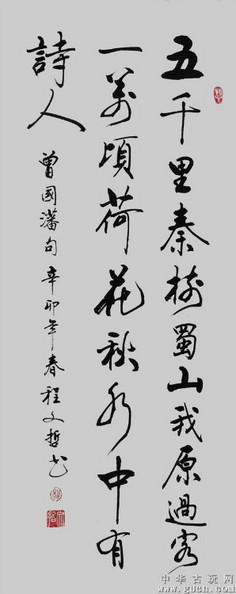 五千里秦樹蜀山我原過客
一萬頃荷花秋水中有
詩人
曾國藩句辛卯年春程文哲书
中华古玩网
www.gucn.com